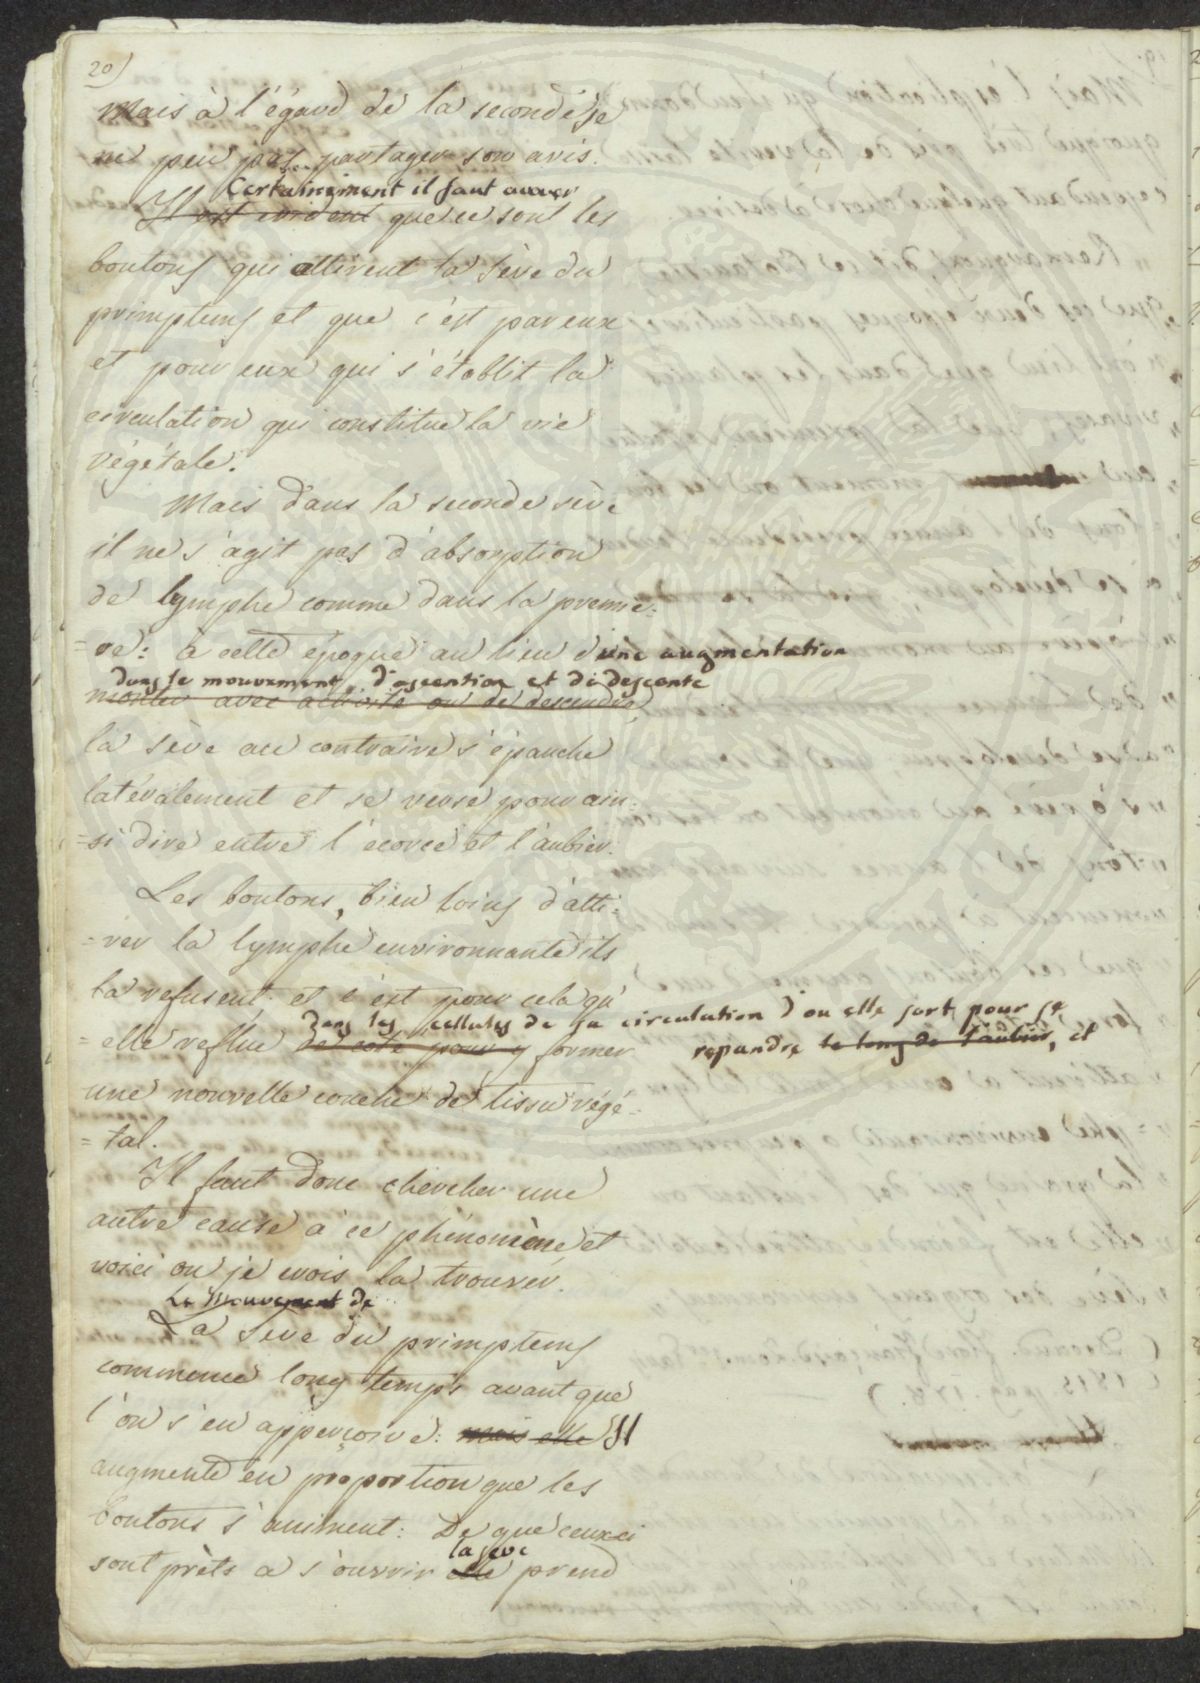 20)
Mais à l'égard de la seconde, je
ne peu pas partager son avis.
Certainement il faut avouer
Il est evident que ce sont les
boutons qui attirent la sève du
primptems et que c'est par eux
et pour eux qui s'établit la
circulation qui constitue la vie
végétale.
Mais dans la seconde sève
il ne s'agit pas d'absorption
de lymphe comme dans la premie=
=re: à cette époque au lieu d'une augmentation
dans le mouvement, d'ascention et de descente
monter avec activité ou de descendre,
la sève au contraire s'épanche
latéralement et se verse pour ain=
=si dire entre l'écorce et l'aubier.
Les boutons, bien loins d'atti=
=rer la lymphe environnante ils
la refusent, et c'est pour cela qu'
dans les cellules de sa circulation d'ou elle sort pour se
=elle reflue de coté pour y former repandre le long de l'aubier, et
une nouvelle couche de tissu végé=
=tal.
Il faut donc chercher une
autre cause à ce phénomène, et
voici ou je crois la trouver.
Le Mouvement de
La Seve du primptems
commence long temps avant que
l'on s'en apperçoive: mais elle Il
augmente en proportion que les
boutons s'animent: De que ceux ci
sont prèts a s'ouvrir
la seve
elle prend